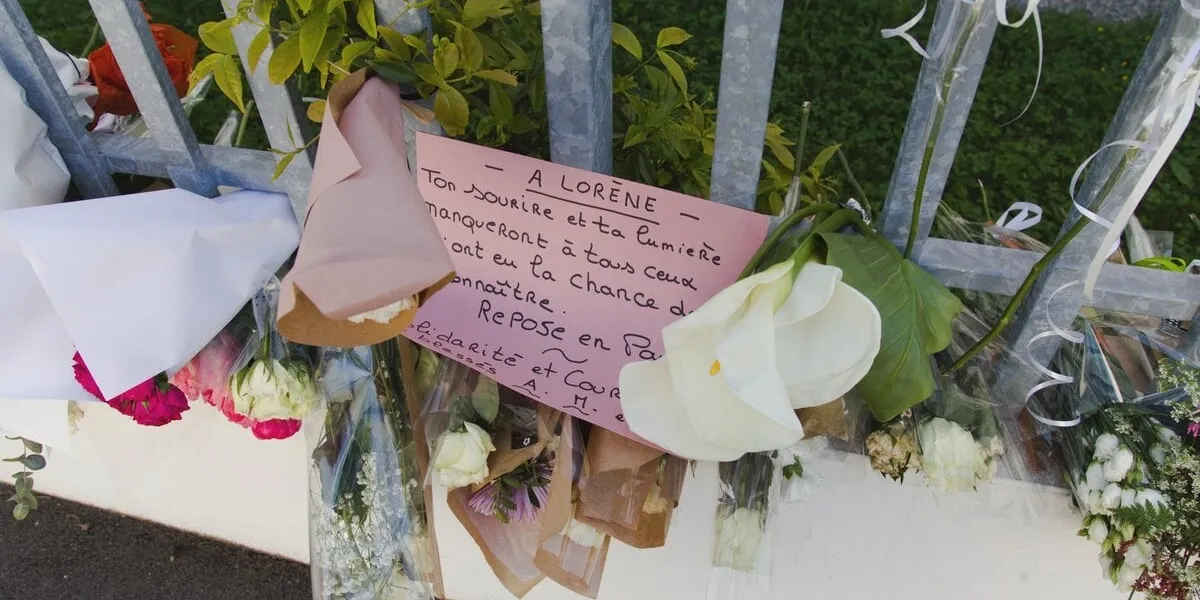 - A LORĒNE -
Ton sourire et ta lumière
manqueront à tous ceux
ont eu la chance de
onnaître.
Repose en Pa
olidarité et Cour
blessés A. M. e